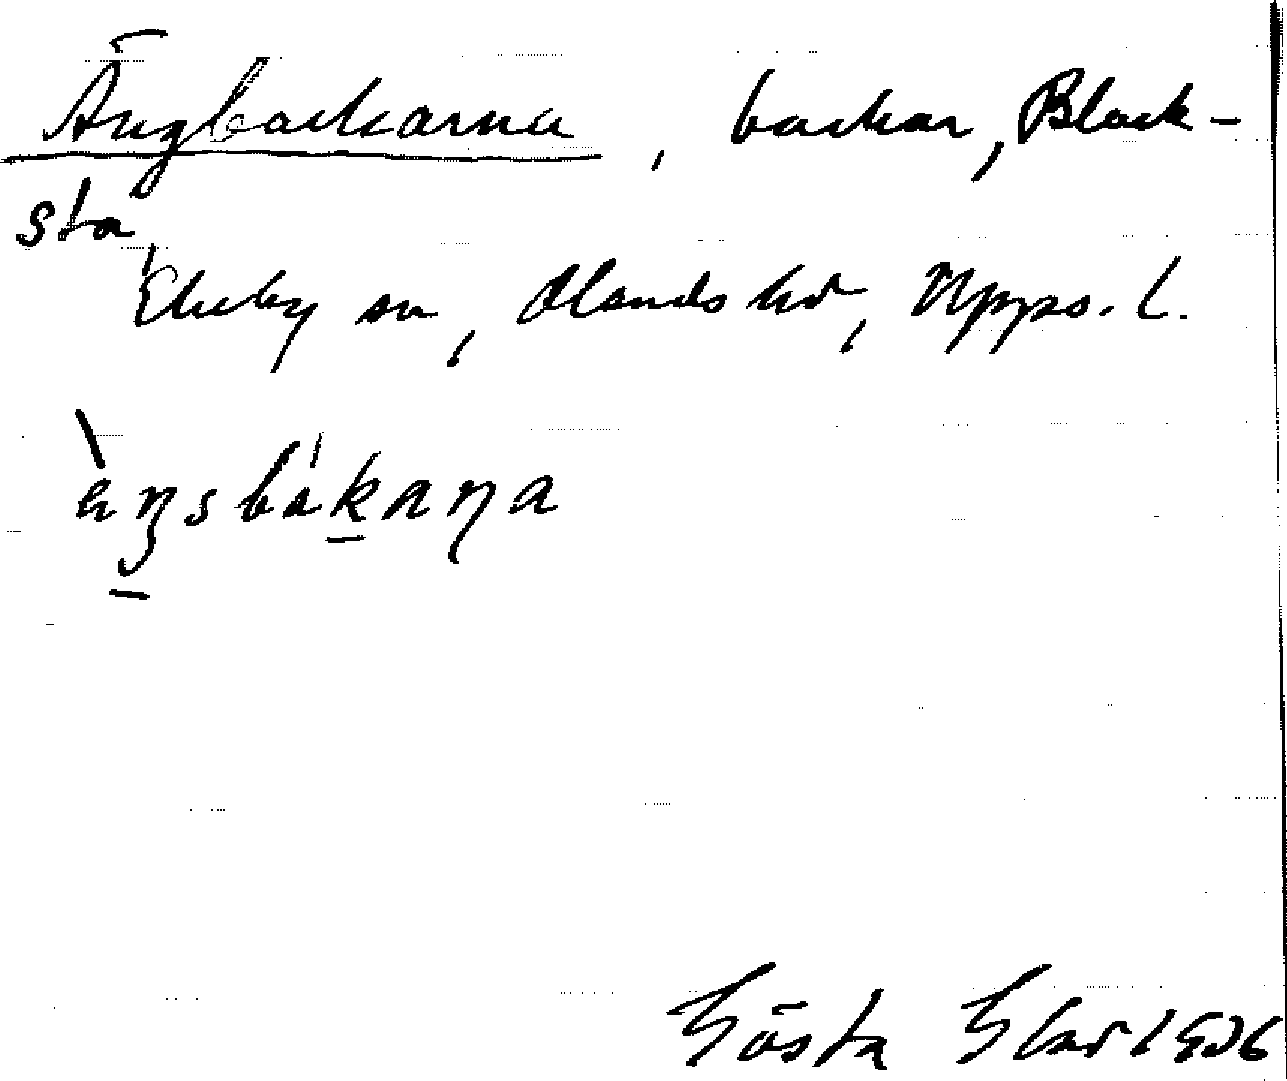 Ängbackarna, backar, Black-
sta
Ekeby sn, Olands hd, Upps. l.
äŋsbákaṇa
Gösta 1906